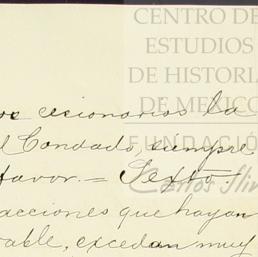 CENTRO DE
ESTUDIOS
DE HISTORIA
DE MÉXICO
FUNDACIÓN
Carlos Slim
os cesionarios la
l Condado, siempre
favor.= Sexto
acciones que hayan
rable, excedan muy